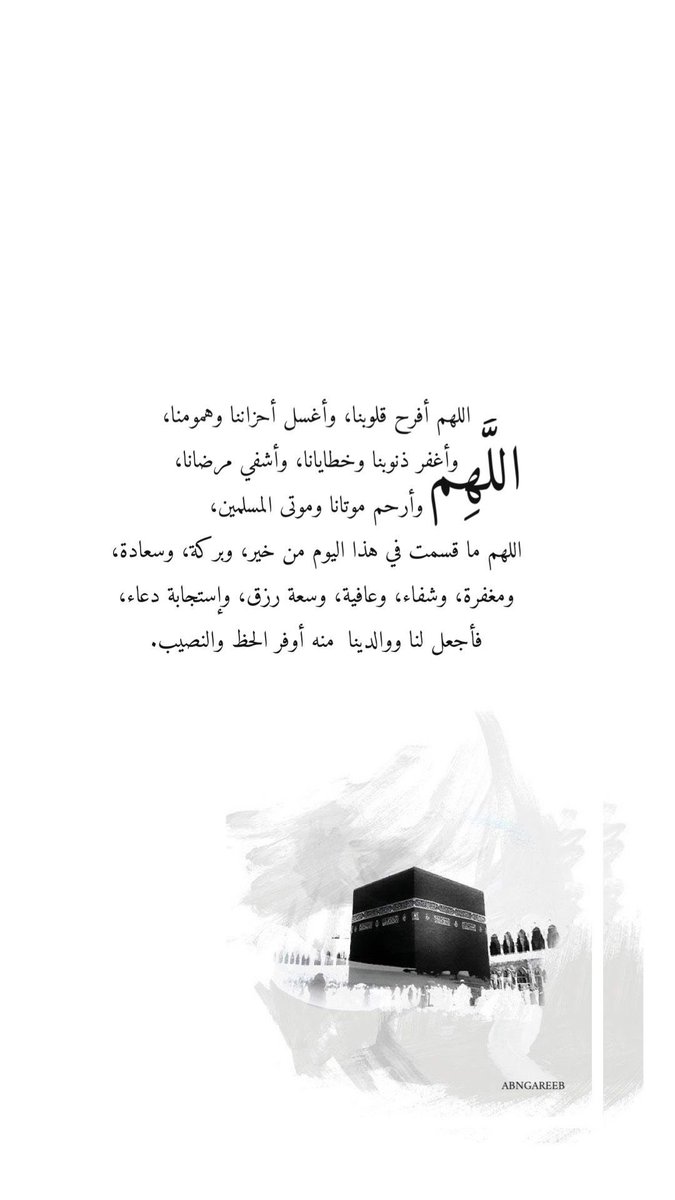 اللهم أفرح قلوبنا، وأغسل أحزاننا وهمومنا،
اللَّهِم
وأغفر ذنوبنا وخطايانا، وأشفي مرضانا،
وأرحم موتانا وموتى المسلمين،
اللهم ما قسمت في هذا اليوم من خير، وبركة، وسعادة،
ومغفرة، وشفاء، وعافية، وسعة رزق، وإستجابة دعاء،
فأجعل لنا ووالدينا منه أوفر الحظ والنصيب.
ABNGAREEB